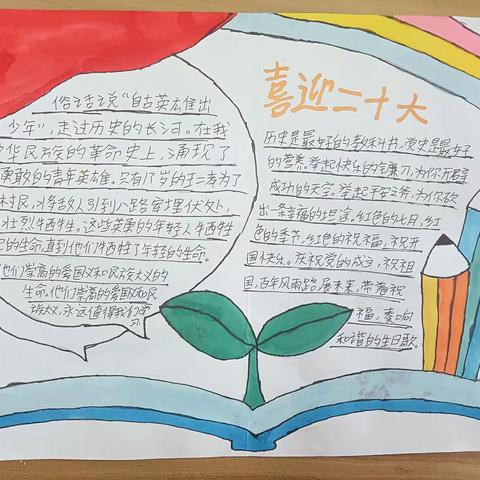 俗话说“自古英雄出
少年”,走过历史的长河。在我
华民族的革命史上,涌现了
勇敢的青年英雄。只有岁的王二为了
村民,将敌人引到八路军埋伏处,
壮烈牺牲。这些英勇的年轻人牺牲
己的生命,直到他们牺牲了年轻的生命。
他们崇高的爱国义和民族大义的
生命。他们崇高的爱国义和民
族大义,永远值得我们学
习
喜迎二十大
历史是最好的教科书,党史是最好
的营养。举起快乐的镰刀,为你开辟
成功的天空。举起平安斧,为你砍
出一条幸福的坦途,红色的七月,红
色的季节,红色的祝福,祝开
国快乐。庆祝党的成立,祝祖
国,百年风雨路,展未来,带着祝
福,奏响
和谐的生日歌。